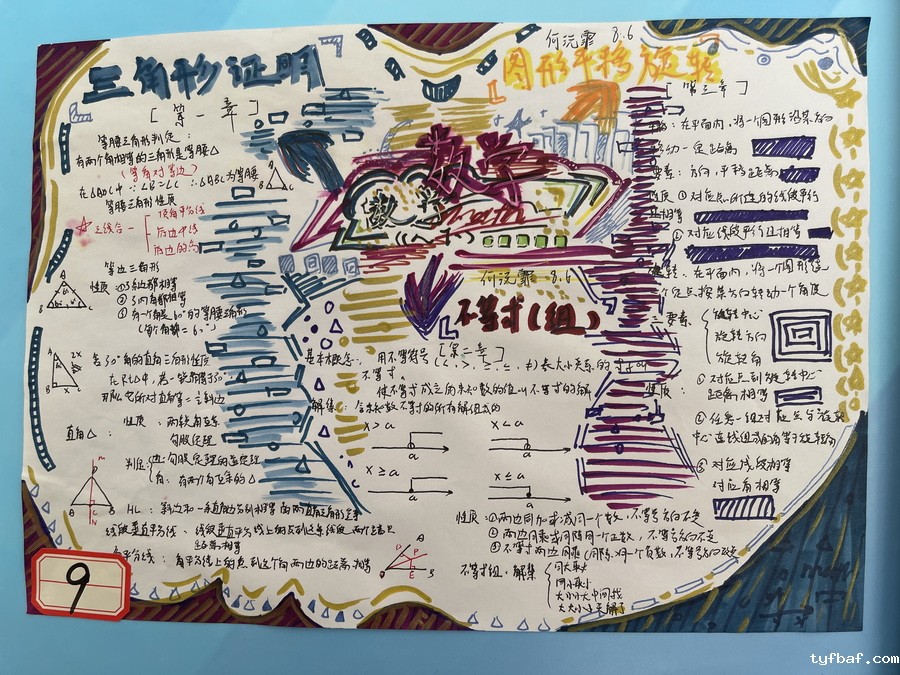 三角形证明
[第一章]
等腰三角形判定:
有两个角相等的三角形是等腰△
(等角对等边)
在△ABC中 ∵∠B=∠C ∴△ABC为等腰
等腰三角形性质
三线合一
顶角平分线
底边中线
底边的高
等边三角形
性质 ①3条边都相等
②3个角都相等
③有一个角是60°的等腰三角形
(每个角都=60°)
含30°角的直角三角形性质
直角△: 性质: 两锐角互余
勾股定理
判定 边:勾股定理的逆定理
角:有两个角互余的△
HL: 斜边和一条直角边分别相等的两直角三角形全等
线段垂直平分线、线段垂直平分线上的点到这条线段
距离相等
角平分线: 角平分线上的点到这个角两边的距离相等
9
何沅霏 8.6
数学
数学
math
何沅霏 8.6
不等式(组)
[第二章]
基本概念: 用不等符号
不等式
使不等式成立的未知数的值叫不等式的解
解集: 含未知数不等式的所有解组成的
x>a
x<a
x≥a
x≤a
性质: ①两边同加或减同一个数, 不等号方向不变
②两边同乘或同除同一个正数, 不等号方向不变
③不等式两边同乘(同除)以同一个负数, 不等号方向改变
不等式组: 解集
同大取大
同小取小
大小小大中间找
大大小小无解了
图形平移旋转
[第三章]
平移: 在平面内, 将一个图形沿某个方向
移动一定距离
要素: 方向, 平移距离
性质 ①对应点所连的线段平行
且相等
②对应线段平行且相等
旋转: 在平面内, 将一个图形绕
一个定点按某个方向转动一个角度
三要素
旋转中心
旋转方向
旋转角
性质:
①对应点到旋转中心
距离相等
②任意一组对应点与旋转
中心连线组成的角等于旋转角
③对应线段相等
对应角相等
tyfbaf.com